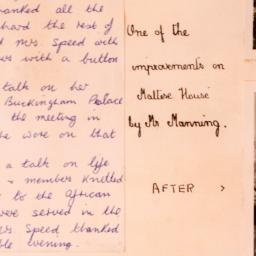 thanked all the
hard the rest of
Mrs. Speed with
ers with a button
talk on her
Buckingham Palace
the meeting in
she wore on that
a talk on life
- member knitted
to the African
were served in the
Mrs Speed thanked
ble evening.
One of the
improvements on
Maltese House
by Mr Manning.
AFTER >